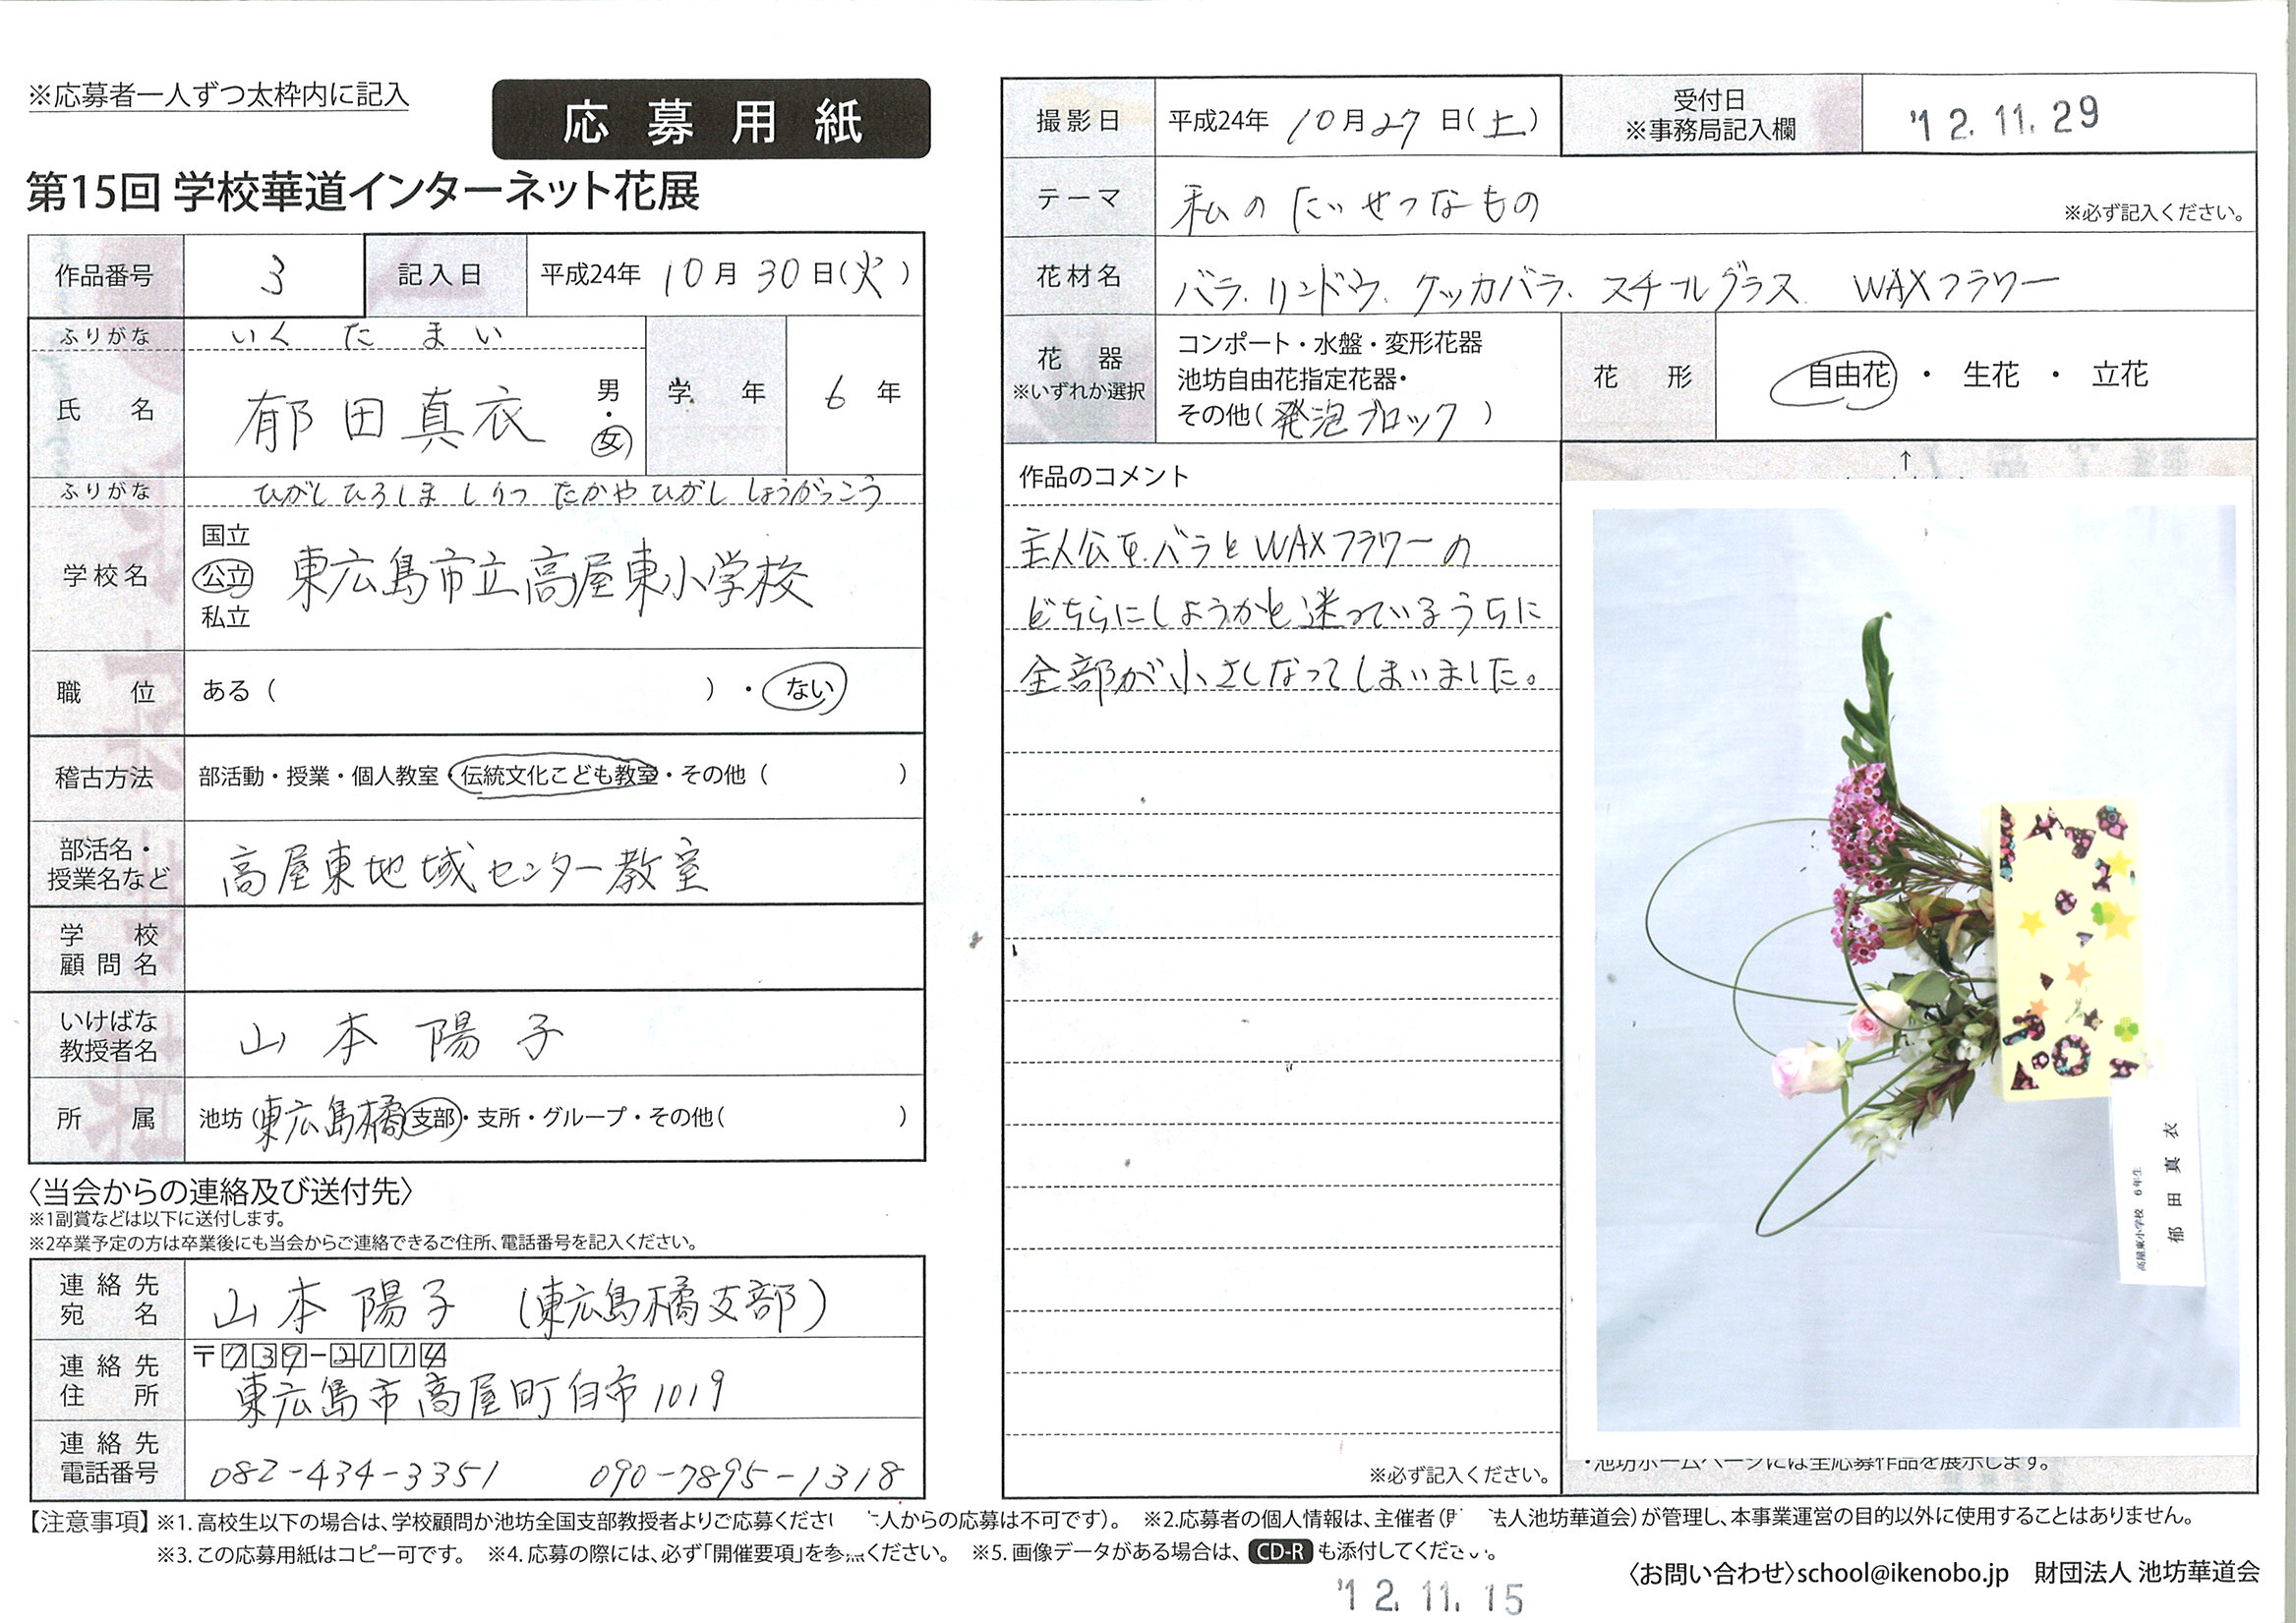 ※応募者一人ずつ太枠内に記入
応募用紙
第15回 学校華道インターネット花展
作品番号 3 記入日 平成24年 10月 30日(火)
ふりがな いくた まい
氏名 郁田真衣 男・女 学年 6年
ふりがな ひがしひろしま しりつ たかやひがし しょうがっこう
学校名 国立 公立 私立 東広島市立高屋東小学校
職位 ある( )・ない
稽古方法 部活動・授業・個人教室・伝統文化こども教室・その他( )
部活名・授業名など 高屋東地域センター教室
学校顧問名
いけばな教授者名 山本陽子
所属 池坊(東広島橘支部・支所・グループ・その他( )
〈当会からの連絡及び送付先〉
※1副賞などは以下に送付します。
※2卒業予定の方は卒業後にも当会からご連絡できるご住所、電話番号を記入ください。
連絡先宛名 山本陽子 (東広島橘支部)
連絡先住所 〒739-2114
東広島市高屋町白市1019
連絡先電話番号 082-434-3351 090-7895-1318
撮影日 平成24年 10月27日(土)
受付日
※事務局記入欄
'12.11.29
テーマ 私のたいせつなもの ※必ず記入ください。
花材名 バラ.リンドウ.ケッカバラ.スチールグラス WAXフラワー
花器 ※いずれか選択
コンポート・水盤・変形花器
池坊自由花指定花器・
その他(発泡ブロック)
花形 自由花・生花・立花
↑
作品のコメント
主人公を.バラとWAXフラワーの
どちらにしようかと迷っているうちに
全部が小さくなってしまいました。
※必ず記入ください。
高屋東小学校 6年生
郁田真衣
・池坊ホームページには全応募作品を展示します。
【注意事項】※1.高校生以下の場合は、学校顧問か池坊全国支部教授者よりご応募くださ 人からの応募は不可です)。 ※2.応募者の個人情報は、主催者( 法人池坊華道会)が管理し、本事業運営の目的以外に使用することはありません。
※3.この応募用紙はコピー可です。 ※4.応募の際には、必ず「開催要項」を参 ください。 ※5.画像データがある場合は、CD-Rも添付してください。
〈お問い合わせ〉school@ikenobo.jp 財団法人 池坊華道会
'12.11.15